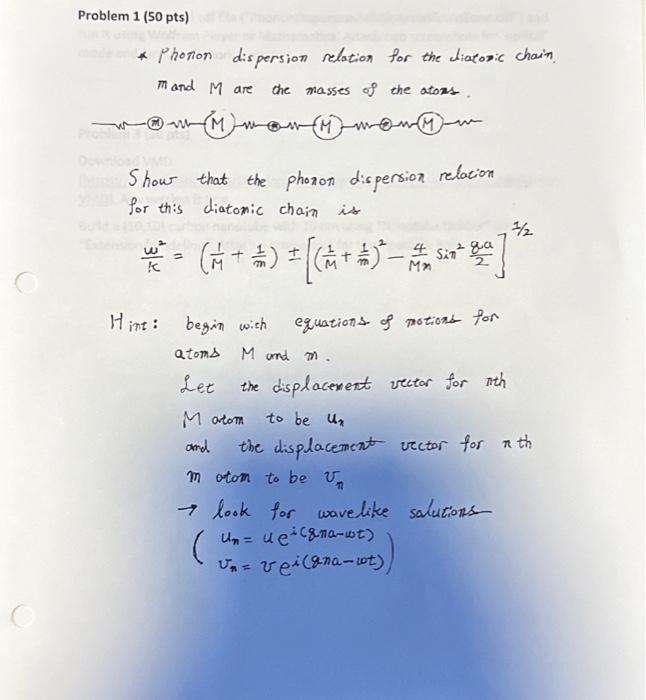 Problem 1 (50 pts)
* Phonon dispersion relation for the diatomic chain.
m and M are the masses of the atoms.
m M M M
Show that the phonon dispersion relation
for this diatomic chain is
ω²/k = (1/M + 1/m) ± [(1/M + 1/m)² − 4/Mm sin² qa/2]^1/2
Hint: begin with equations of motions for
atoms M and m.
Let the displacement vector for nth
M atom to be uₙ
and the displacement vector for nth
m atom to be vₙ
→ look for wavelike solutions
( uₙ = u e^i(qna−ωt)
vₙ = v e^i(qna−ωt) )